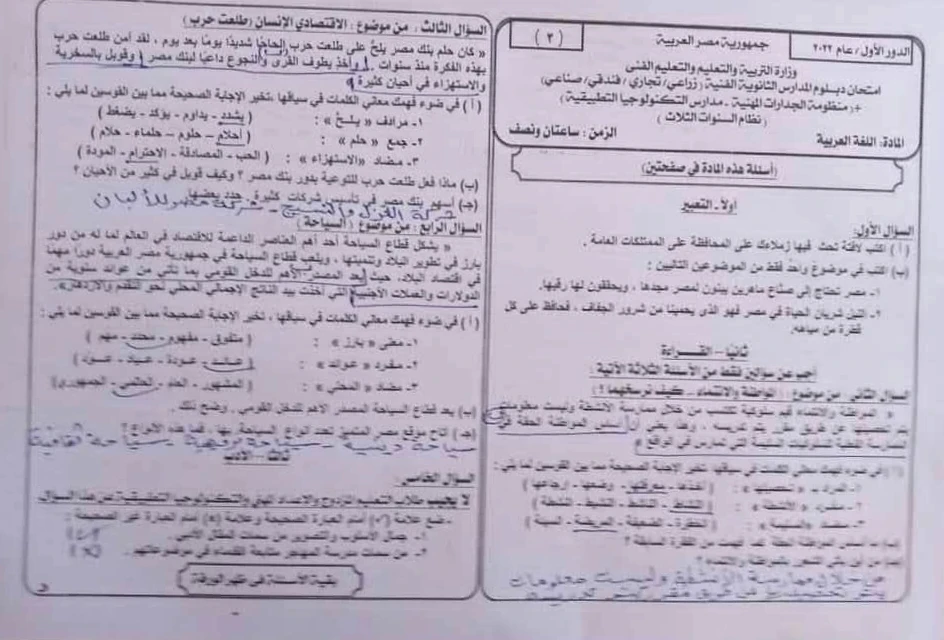 الدور الأول/ عام ٢٠٢٢
جمهورية مصر العربية
( ٢ )
وزارة التربية والتعليم والتعليم الفنى
امتحان دبلوم المدارس الثانوية الفنية (زراعي/ تجاري/ فندقي/ صناعي)
+( منظومة الجدارات المهنية - مدارس التكنولوجيا التطبيقية )
( نظام السنوات الثلاث )
المادة: اللغة العربية
الزمن: ساعتان ونصف
(أسئلة هذه المادة في صفحتين)
أولاً - التعبير
السؤال الأول:
( أ ) اكتب لافتة تحث فيها زملاءك على المحافظة على الممتلكات العامة .
(ب) اكتب في موضوع واحد فقط من الموضوعين التاليين :
١- مصر تحتاج إلى صناع ماهرين يبنون لمصر مجدها ، ويحققون لها رقيها.
٢- النيل شريان الحياة في مصر فهو الذى يحمينا من شرور الجفاف ، فحافظ على كل
قطرة من مياهه.
ثانيًا - القراءة
أجب عن سؤالين فقط من الأسئلة الثلاثة الآتية :
السؤال الثاني: من موضوع : (المواطنة والانتماء.. كيف نرسخهما ؟)
« المواطنة والانتماء قيم سلوكية تكتسب من خلال ممارسة الأنشطة وليست معلومات
يتم تحصيلها عن طريق مقرر يتم تدريسه ، وهذا يعنى أن أساس المواطنة الحقة في
الممارسة الفعلية للسلوكيات السليمة التي تمارس في الواقع »
( أ ) في ضوء فهمك معاني الكلمات في سياقها، تخير الإجابة الصحيحة مما بين القوسين لما يلي :
١- المراد بـ «تحصيلها» : ( أخذها - معرفتها - وضعها - إرجاعها )
٢- مفرد « الأنشطة» : ( النشاط - الناشط - النشيط - النشطة )
٣- مضاد «السليمة» : ( الخطرة - الضعيفة - المريضة - السيئة )
(ب) ما أساس المواطنة الحقة كما فهمت من الفقرة السابقة ؟
(جـ) من أين يأتي الشعور بالمواطنة والانتماء ؟
من خلال ممارسة الأنشطة وليست معلومات
يتم تحصيلها عن طريق مقرر يتم تدريسه
السؤال الثالث : من موضوع : الاقتصادي الإنسان (طلعت حرب)
« كان حلم بنك مصر يلح على طلعت حرب إلحاحًا شديدًا يومًا بعد يوم ، لقد آمن طلعت حرب
بهذه الفكرة منذ سنوات ، وأخذ يطوف القرى والنجوع داعيًا لبنك مصر ، وقوبل بالسخرية
والاستهزاء في أحيان كثيرة »
( أ ) في ضوء فهمك معاني الكلمات في سياقها، تخير الإجابة الصحيحة مما بين القوسين لما يلي :
١- مرادف « يلح » : ( يشدد - يداوم - يؤكد - يضغط )
٢- جمع « حلم » : ( أحلام - حلوم - حلماء - حلام )
٣- مضاد «الاستهزاء» : ( الحب - المصادقة - الاحترام - المودة )
(ب) ماذا فعل طلعت حرب للتوعية بدور بنك مصر ؟ وكيف قوبل في كثير من الأحيان ؟
(جـ) أسهم بنك مصر في تأسيس شركات كثيرة. حدد بعضها
شركة الغزل والنسيج - شركة مصر للألبان
السؤال الرابع : من موضوع ( السياحة )
« يشكل قطاع السياحة أحد أهم العناصر الداعمة للاقتصاد في العالم لما له من دور
بارز في تطوير البلاد وتنميتها ، ويلعب قطاع السياحة في جمهورية مصر العربية دورًا مهمًا
في اقتصاد البلاد، حيث يعد المصدر الأهم للدخل القومي بما تأتي من عوائد سنوية من
الدولارات والعملات الأجنبية التي أخذت بيد الناتج الإجمالي المحلي نحو التقدم والازدهار».
( أ ) في ضوء فهمك معاني الكلمات في سياقها ، تخير الإجابة الصحيحة مما بين القوسين لما يلي :
١- معنى « بارز » : ( متفوق - مفهوم - محدد - مهم )
٢- مفرد « عوائد » : ( عائد - عودة - عياد - عود )
٣- مضاد « المحلي » : ( المشهور - العام - العالمي - الجمهوري)
(ب) يعد قطاع السياحة المصدر الأهم للدخل القومي . وضح ذلك .
(جـ) أتاح موقع مصر المتميز تعدد أنواع السياحة بها ، فما هذه الأنواع ؟
سياحة دينية - سياحة ترفيهية - سياحة ثقافية
ثالثًا - الأدب
السؤال الخامس :
لا يجيب طلاب التعليم المزدوج والإعداد المهني والتكنولوجيا التطبيقية عن هذا السؤال
- ضع علامة (✓) أمام العبارة الصحيحة وعلامة (×) أمام العبارة غير الصحيحة :
١- جمال الأسلوب والتصوير من سمات المقال الأدبي . (✓)
٢- من سمات مدرسة المهجر متابعة القدماء في موضوعاتهم . (×)
بقية الأسئلة في ظهر الورقة